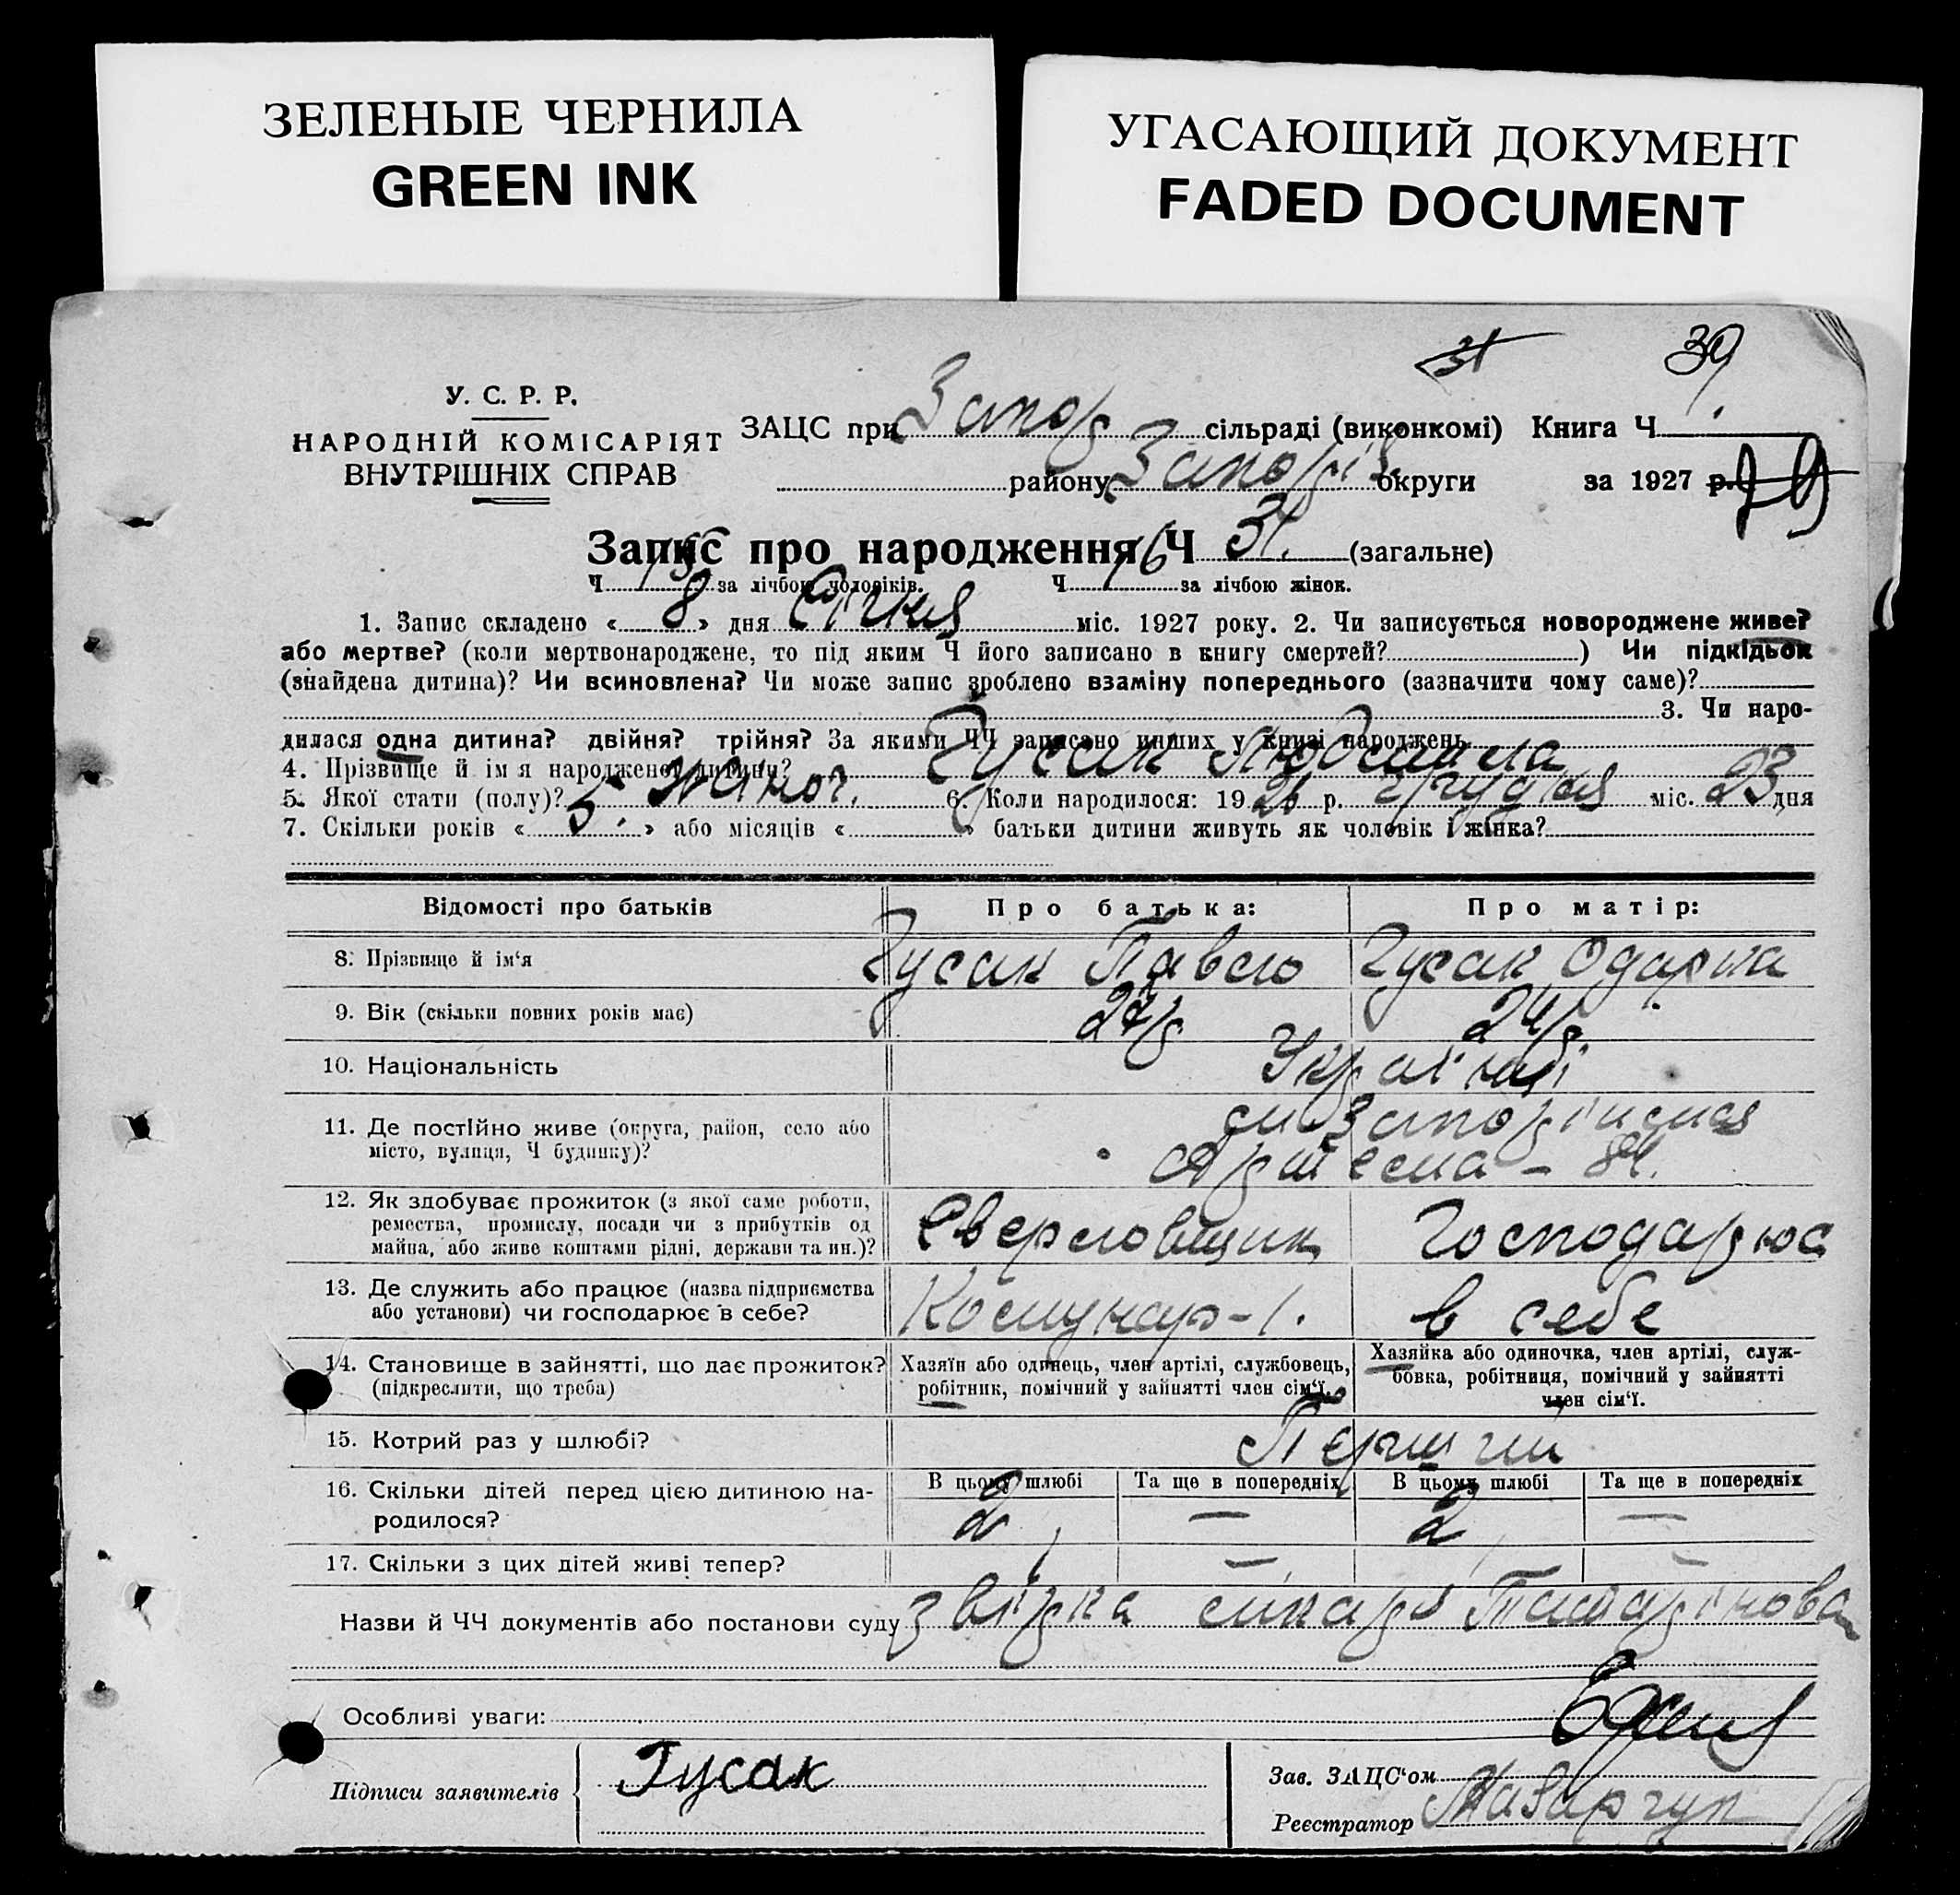 ЗЕЛЕНЫЕ ЧЕРНИЛА
GREEN INK
УГАСАЮЩИЙ ДОКУМЕНТ
FADED DOCUMENT
31 39
У. С. Р. Р.
НАРОДНІЙ КОМІСАРІЯТ
ВНУТРІШНІХ СПРАВ
ЗАЦС при Запор сільраді (виконкомі) Книга Ч 1.
району Запоріз округи за 1927 р.
Запис про народження Ч 31. (загальне)
Ч 15 за лічбою чоловіків. Ч 16 за лічбою жінок.
1. Запис складено « 8 » дня Січня міс. 1927 року. 2. Чи записується новороджене живе?
або мертве? (коли мертвонароджене, то під яким Ч його записано в книгу смертей? ) Чи підкідьок
(знайдена дитина)? Чи всиновлена? Чи може запис зроблено взаміну попереднього (зазначити чому саме)?
3. Чи наро-
дилася одна дитина? двійня? трійня? За якими ЧЧ записано инших у книзі народжень
4. Прізвище й ім я народженої дитини? Гусак Людмила
5. Якої стати (полу)? жіноч. 6. Коли народилося: 1926 р. грудня міс. 23 дня
7. Скільки років « 5. » або місяців « » батьки дитини живуть як чоловік і жінка?
Відомості про батьків Про батька: Про матір:
8. Прізвище й ім'я Гусак Павло Гусак Одарка
9. Вік (скільки повних років має) 27р 24р.
10. Національність Українці
11. Де постійно живе (округа, район, село або
місто, вулиця, Ч будинку)? Запоріжжя
Артема - 84.
12. Як здобуває прожиток (з якої саме роботи,
ремества, промислу, посади чи з прибутків од
майна, або живе коштами рідні, держави та ин.)? Сверловщик Господарює
13. Де служить або працює (назва підприємства
або установи) чи господарює в себе? Комунар-1. в себе
14. Становище в зайнятті, що дає прожиток?
(підкреслити, що треба)
Хазяїн або одинець, член артілі, службовець,
робітник, помічний у зайнятті член сім'ї.
Хазяйка або одиночка, член артілі, служ-
бовка, робітниця, помічний у зайнятті
член сім'ї.
15. Котрий раз у шлюбі? Перший
В цьому шлюбі Та ще в попередніх В цьому шлюбі Та ще в попередніх
16. Скільки дітей перед цією дитиною на-
родилося? 2 — 2 —
17. Скільки з цих дітей живі тепер? — —
Назви й ЧЧ документів або постанови суду звірка лікаря Татарінова
Особливі уваги:
Підписи заявителів Гусак
Зав. ЗАЦС'ом
Реєстратор